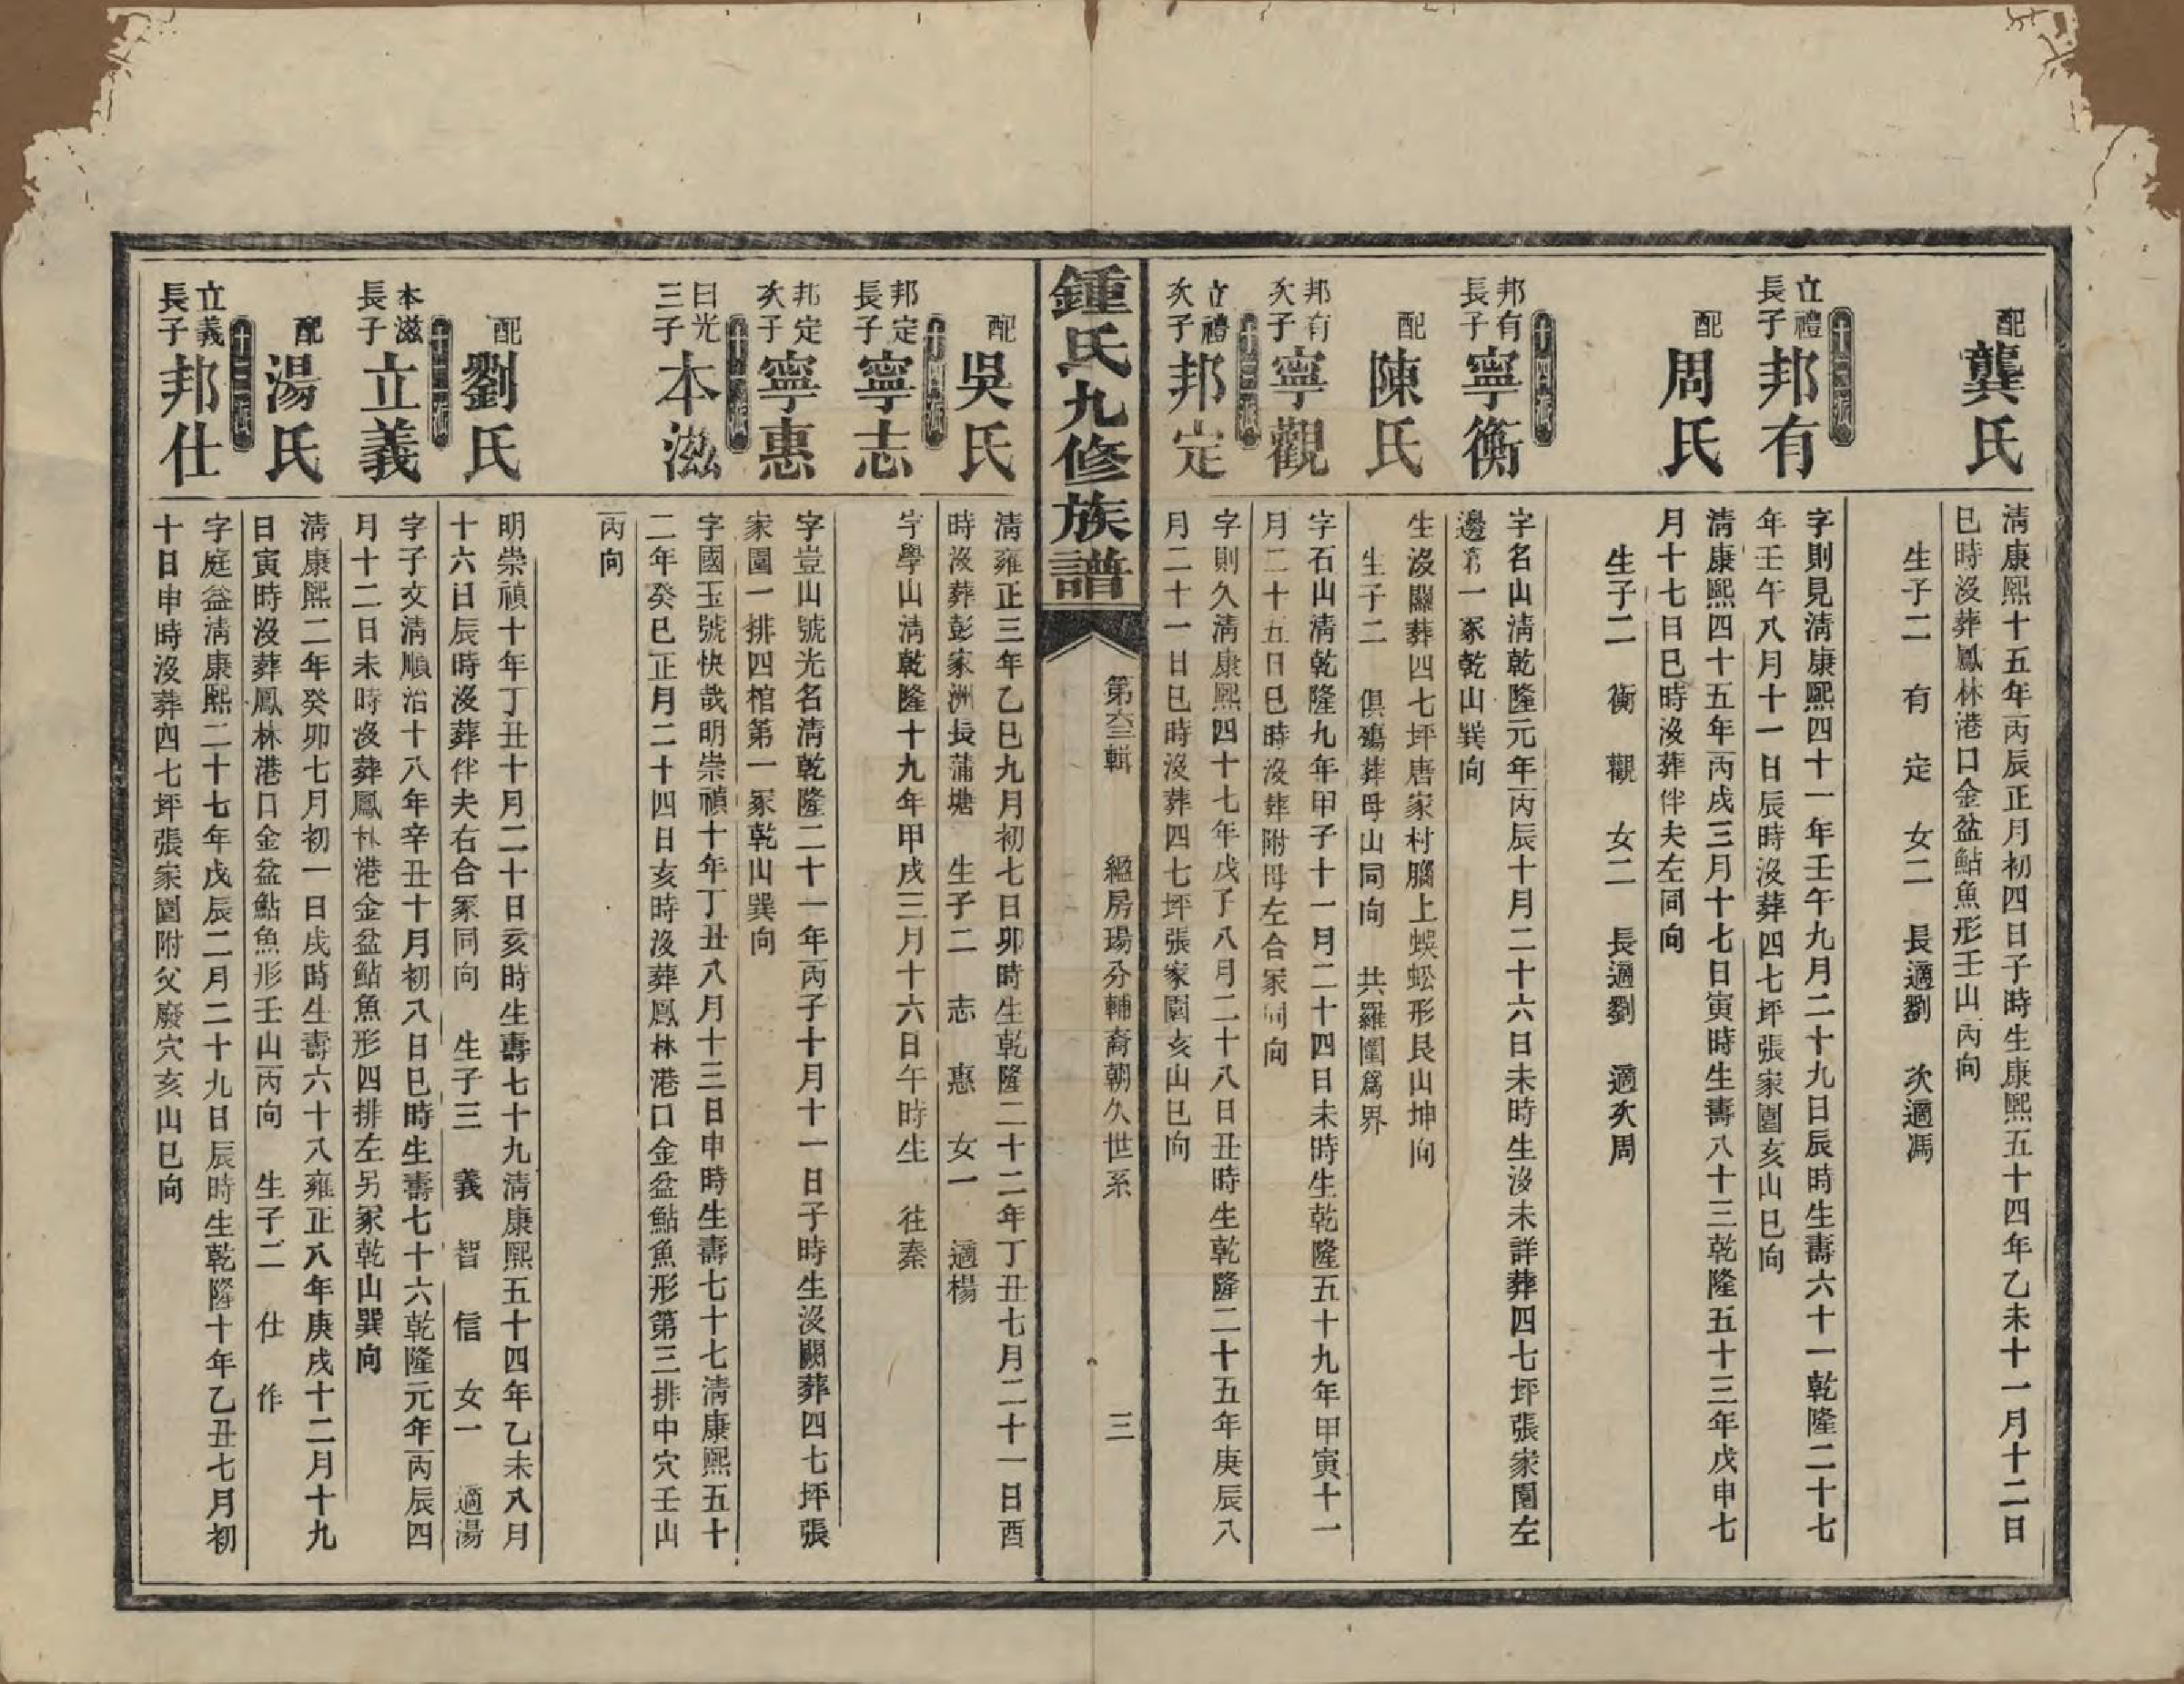 配
龔氏
清康熙十五年丙辰正月初四日子時生康熙五十四年乙未十一月十二日
巳時沒葬鳳林港口金盆鮎魚形壬山丙向
生子二　有　定　女二　長適劉　次適馮
十三派
立禮
長子
邦有
字則見清康熙四十一年壬午九月二十九日辰時生壽六十一乾隆二十七
年壬午八月十一日辰時沒葬四七坪張家園亥山巳向
配
周氏
清康熙四十五年丙戌三月十七日寅時生壽八十三乾隆五十三年戊申七
月十七日巳時沒葬伴夫左同向
生子二　衡　觀　女二　長適劉　適次周
十四派
邦有
長子
寧衡
字名山清乾隆元年丙辰十月二十六日未時生沒未詳葬四七坪張家園左
邊第一冢乾山巽向
配
陳氏
生沒闕葬四七坪唐家村腦上蜈蚣形艮山坤向
生子二　俱殤葬母山同向　共羅圍爲界
邦有
次子
寧觀
字石山清乾隆九年甲子十一月二十四日未時生乾隆五十九年甲寅十一
月二十五日巳時沒葬附母左合冢同向
十三派
立禮
次子
邦定
字則久清康熙四十七年戊子八月二十八日丑時生乾隆二十五年庚辰八
月二十一日巳時沒葬四七坪張家園亥山巳向
鍾氏九修族譜
第叁輯
縕房瑒分輔裔朝久世系
三
配
吳氏
清雍正三年乙巳九月初七日卯時生乾隆二十二年丁丑七月二十一日酉
時沒葬彭家洲長蒲塘　生子二　志　惠　女一　適楊
十四派
邦定
長子
寧志
字學山清乾隆十九年甲戌三月十六日午時生　往秦
邦定
次子
寧惠
字豈山號光名清乾隆二十一年丙子十月十一日子時生沒闕葬四七坪張
家園一排四棺第一冢乾山巽向
十一派
日光
三子
本滋
字國玉號快哉明崇禎十年丁丑八月十三日申時生壽七十七清康熙五十
二年癸巳正月二十四日亥時沒葬鳳林港口金盆鮎魚形第三排中穴壬山
丙向
配
劉氏
明崇禎十年丁丑十月二十日亥時生壽七十九清康熙五十四年乙未八月
十六日辰時沒葬伴夫右合冢同向　生子三　義　智　信　女一　適湯
十二派
本滋
長子
立義
字子文清順治十八年辛丑十月初八日巳時生壽七十六乾隆元年丙辰四
月十二日未時沒葬鳳林港金盆鮎魚形四排左另冢乾山巽向
配
湯氏
清康熙二年癸卯七月初一日戌時生壽六十八雍正八年庚戌十二月十九
日寅時沒葬鳳林港口金盆鮎魚形壬山丙向　生子二　仕　作
十三派
立義
長子
邦仕
字庭益清康熙二十七年戊辰二月二十九日辰時生乾隆十年乙丑七月初
十日申時沒葬四七坪張家園附父廢穴亥山巳向